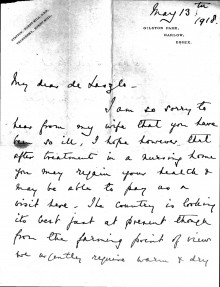 May 13th
1918.
GILSTON PARK,
HARLOW,
ESSEX.
My dear de Laszlo –
I am so sorry to
hear from my wife that you have
been so ill, I hope however, that
after treatment in a nursing home
you may regain your health &
may be able to pay us a
visit here. The country is looking
its best just at present though
from the farming point of view
we urgently require warm & dry